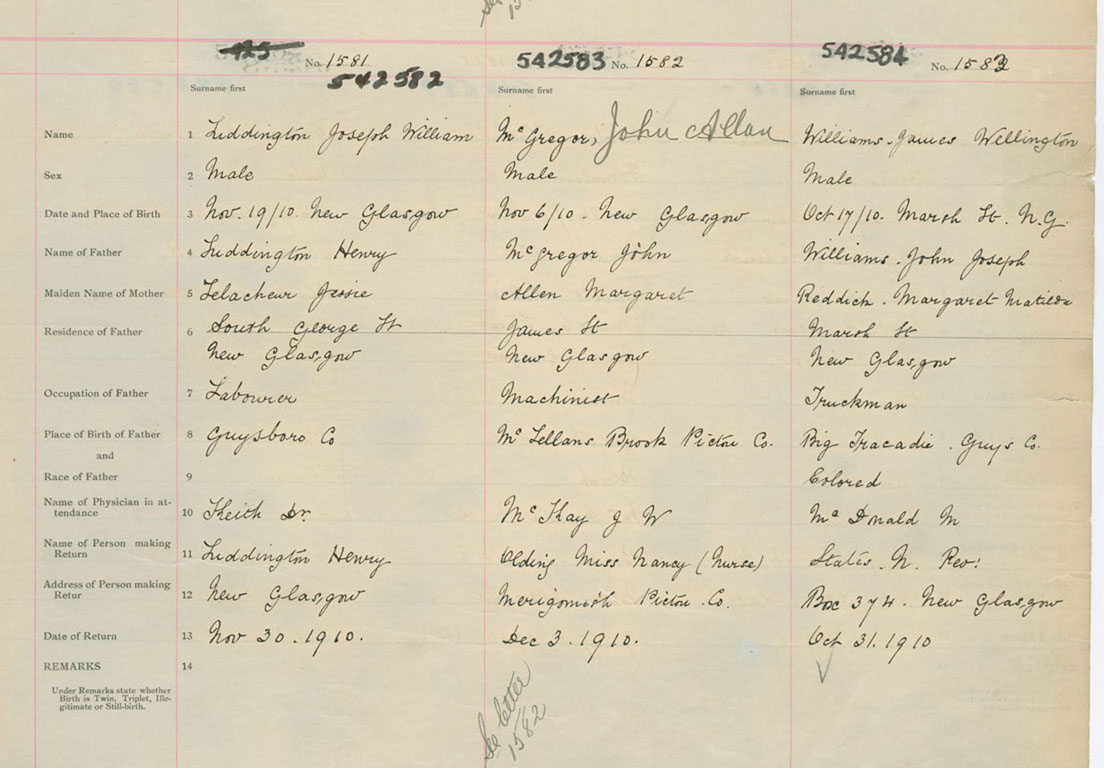 See
15
425 No. 1581 542583 No. 1582 542584 No. 1583
542582
Surname first Surname first Surname first
Name 1 Luddington Joseph William McGregor, John Allan Williams. James Wellington
Sex 2 Male Male Male
Date and Place of Birth 3 Nov. 19/10. New Glasgow Nov 6/10. New Glasgow Oct 17/10. Marsh St. N.G.
Name of Father 4 Luddington Henry McGregor John Williams. John Joseph
Maiden Name of Mother 5 Lelacheur Jessie Allen Margaret Reddick. Margaret Matilda
Residence of Father 6 South George St James St Marsh St
New Glasgow New Glasgow New Glasgow
Occupation of Father 7 Labourer Machinist Truckman
Place of Birth of Father 8 Guysboro Co McLellans Brook Pictou Co. Big Tracadie. Guys Co.
and
Race of Father 9 Colored
Name of Physician in at-
tendance 10 Keith Dr. McKay J W McDonald M
Name of Person making
Return 11 Luddington Henry Olding Miss Nancy (Nurse) States. N. Rev:
Address of Person making
Retur 12 New Glasgow Merigomish Pictou. Co. Box 374. New Glasgow
Date of Return 13 Nov 30. 1910. Dec 3. 1910. Oct 31. 1910
REMARKS 14
Under Remarks state whether
Birth is Twin, Triplet, Ille-
gitimate or Still-birth.
See letter
1582